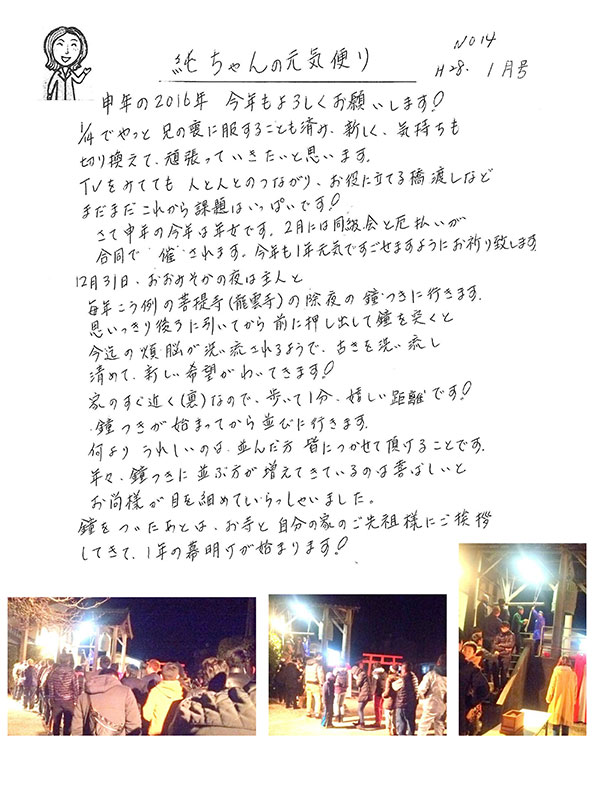 NO14
純ちゃんの元気便り
H28. 1月号
申年の2016年 今年もよろしくお願いします!
1/4でやっと 兄の喪に服することも済み、新しく、気持ちも
切り換えて、頑張っていきたいと思います。
TVをみてても 人と人とのつながり、お役に立てる橋渡しなど
まだまだこれから課題はいっぱいです!
さて申年の今年は年女です。2月には同級会と厄払いが
合同で 催されます。今年も1年元気ですごせますようにお祈り致します
12月31日、おおみそかの夜は主人と
毎年こう例の菩提寺(龍雲寺)の除夜の鐘つきに行きます。
思いっきり後ろに引いてから前に押し出して鐘を突くと
今迄の煩脳が洗い流されるようで、古きを洗い流し
清めて、新しい希望がわいてきます!
家のすぐ近く(裏)なので、歩いて1分、嬉しい距離です!
鐘つきが始まってから並びに行きます。
何より うれしいのは、並んだ方 皆につかせて頂けることです。
年々、鐘つきに並ぶ方が増えてきているのは喜ばしいと
お尚様が目を細めていらっしゃいました。
鐘をついたあとは、お寺と自分の家のご先祖様にご挨拶
してきて、1年の幕明けが始まります!